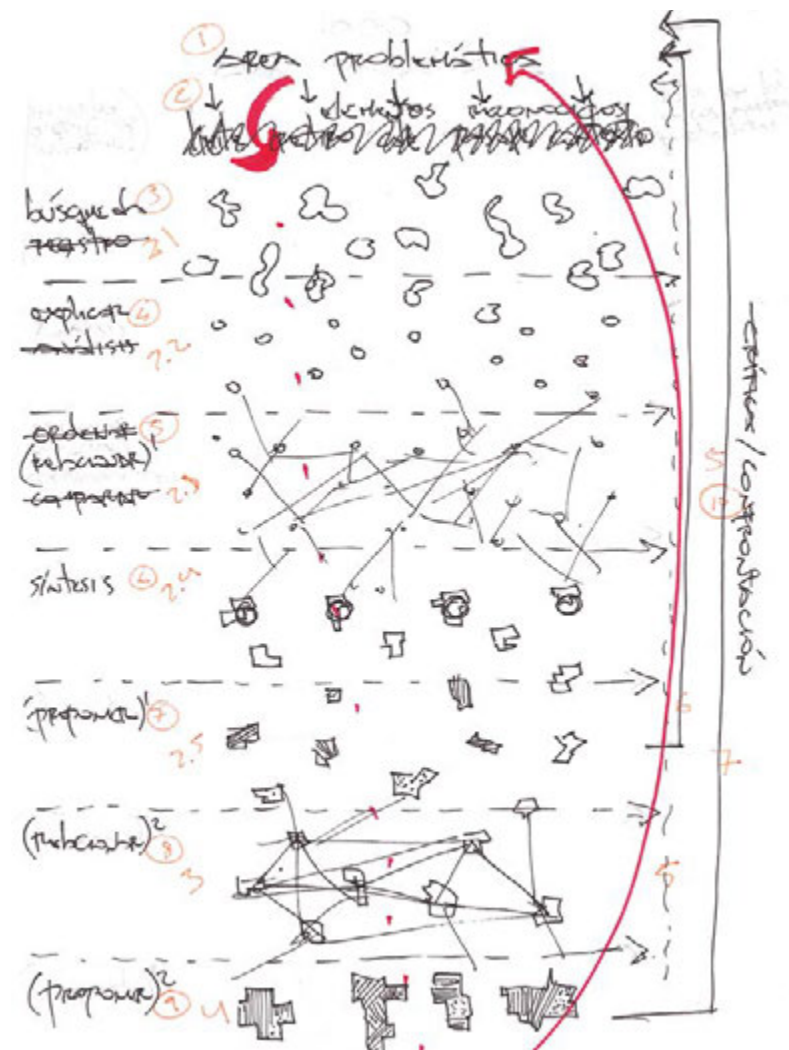 1
área problemática
2
elementos reconocidos
búsqueda 3
registro 2.1
explicar 4
análisis 2.2
ordenar 5
(relacionar)¹
comparar 2.3
síntesis 6 2.4
(proponer)¹ 7
2.5
(relacionar)² 8
3
(proponer)² 9 4
crítica / confrontación
10
5
6
7
5